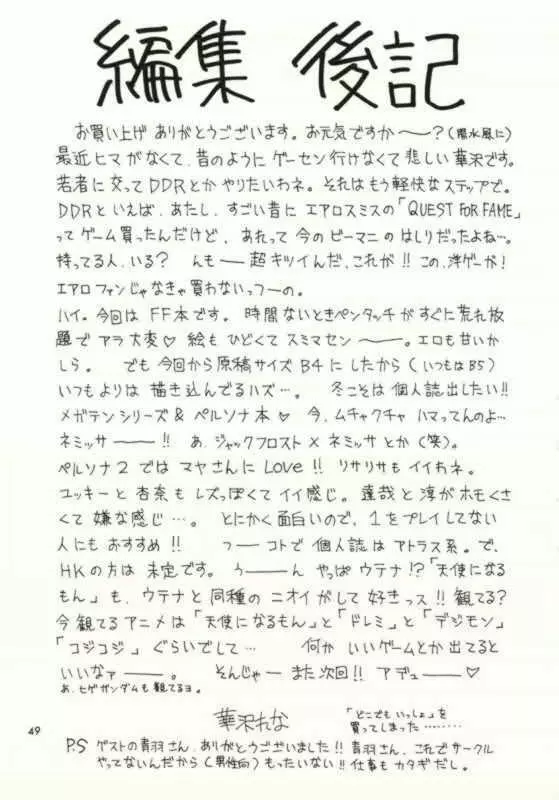 編集 後記
お買い上げ ありがとうございます。お元気ですか〜？(陽水風に)
最近ヒマがなくて、昔のようにゲーセン行けなくて悲しい華沢です。
若者に交ってDDRとかやりたいわネ。それはもう軽快なステップで。
DDRといえば、あたし、すごい昔に エアロスミスの「QUEST FOR FAME」
ってゲーム買ったんだけど、あれって今のビーマニのはしりだったよね…。
持ってる人、いる？ んもー超キツイんだ、これが!! この、洋ゲーが!
エアロファンじゃなきゃ買わないっつーの。
ハイ。今回は FF本です。時間ないときペンタッチがすぐに荒れ放
題でアラ大変♡ 絵もひどくてスミマセンー。エロも甘いか
しら。 でも今回から原稿サイズB4にしたから(いつもはB5)
いつもよりは描き込んでるハズ…。 冬こそは個人誌出したい!!
メガテンシリーズ & ペルソナ本♡ 今、ムチャクチャ ハマってんのよ…
ネミッサー!! あ、ジャックフロスト×ネミッサとか(笑)。
ペルソナ2では マヤさんに Love!! リサリサも イイわネ。
ユッキーと杏奈もレズっぽくてイイ感じ。達哉と淳がホモくさ
くて嫌な感じ…。 とにかく面白いので、1をプレイしてない
人にもおすすめ!! つーコトで個人誌はアトラス系。で、
HKの方は未定です。うーん やっぱウテナ!?「天使になる
もん」も、ウテナと同種のニオイがして好きっス!! 観てる?
今観てるアニメは「天使になるもん」と「ドレミ」と「デジモン」
「コジコジ」ぐらいでして… 何かいいゲームとか出てると
いいなァー。 そんじゃー また次回!! アデューー♡
あ、ヒゲガンダムも観てるヨ。
華沢れな
「どこでもいっしょ」を
買ってしまった………
49
P.S ゲストの青羽さん、ありがとうございました!! 青羽さん、これでサークル
やってないんだから(男性向)もったいない!! 仕事もカタギだし。